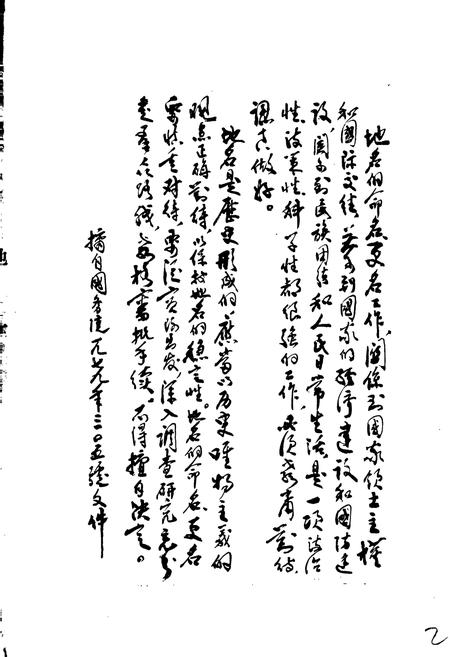 地名的命名、更名工作,关係到国家领土主權
和國际交往,关系到國家的经济建设和国防建
设,関系到民族团结和人民日常生活,是一项法治
性、政策性、科学性都很强的工作,必须严肃对待,
認真做好。
地名是歷史形成的,應當以历史唯物主义的
观点正确對待,以保持地名的稳定性。地名的命名、更名
要慎重对待,要從實际出发,深入调查研究,充分
走群众路线,履行審批手续。不得擅自决定。
摘自國务院一九七九年三〇五號文件
2